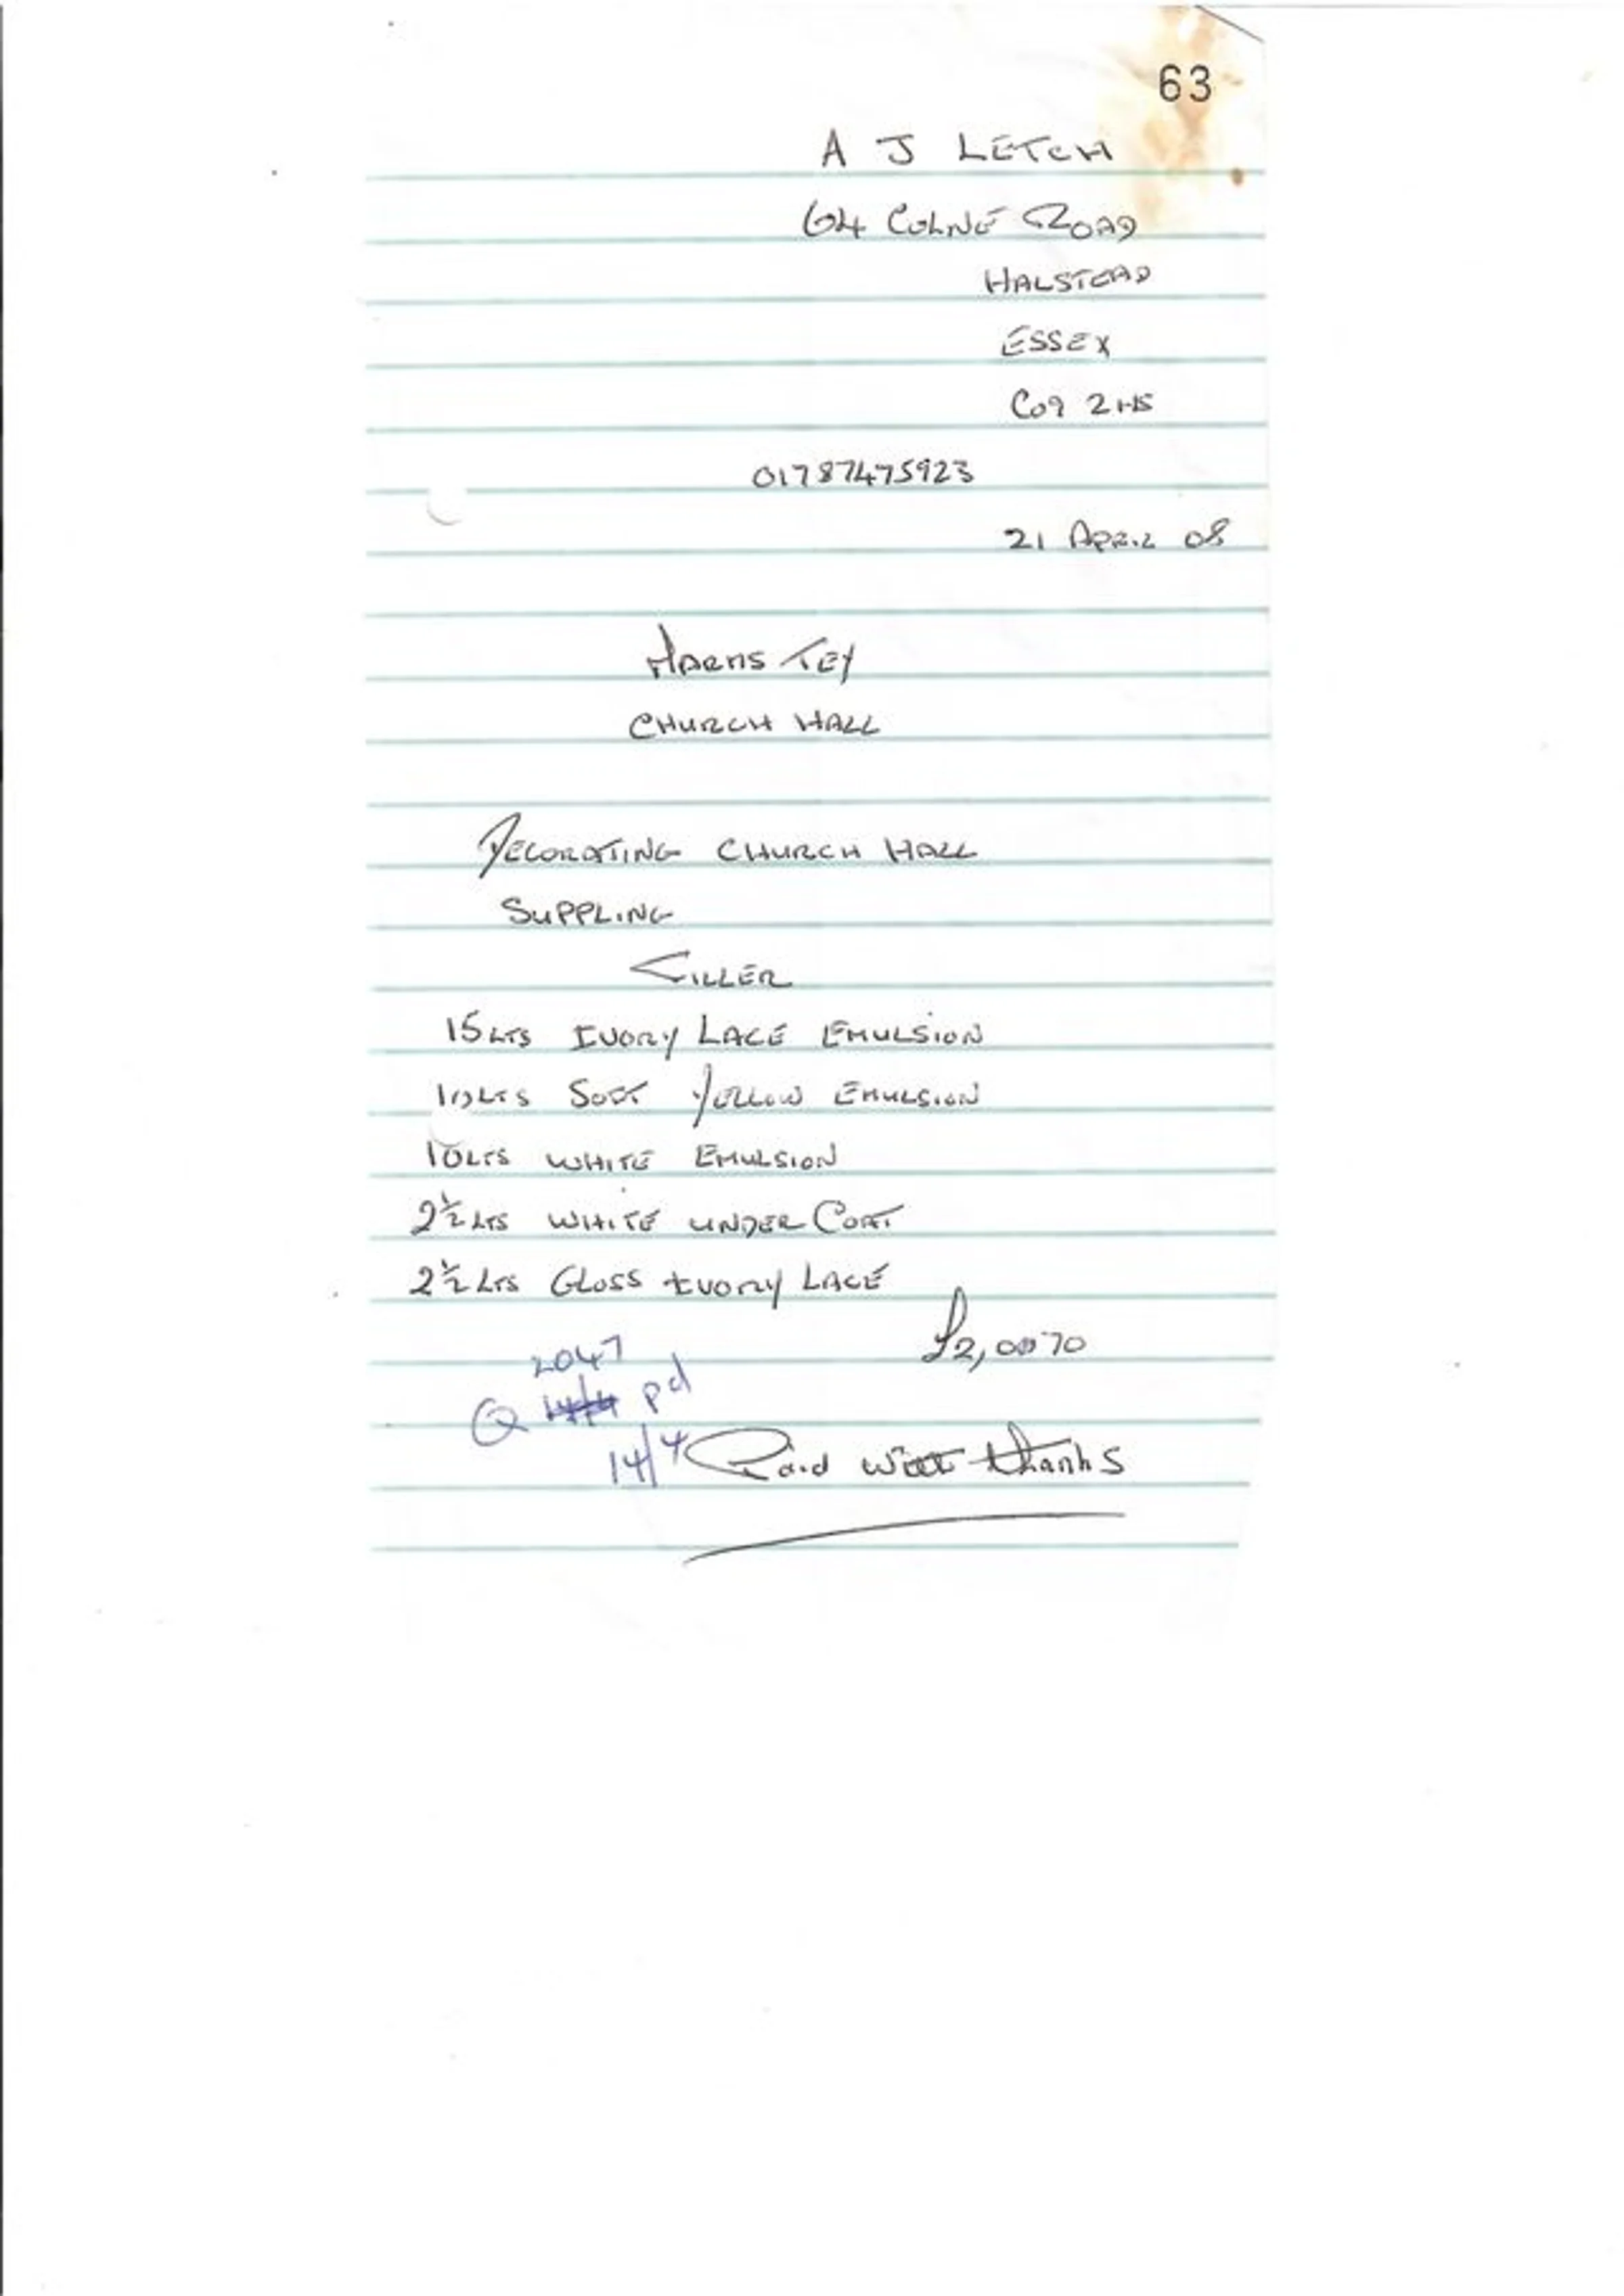 63
A J LETCH
64 COLNE ROAD
HALSTEAD
ESSEX
CO9 2HS
01787475923
21 APRIL 08
MARKS TEY
CHURCH HALL
DECORATING CHURCH HALL
SUPPLING
FILLER
15 LTS IVORY LACE EMULSION
10 LTS SOFT YELLOW EMULSION
10 LTS WHITE EMULSION
2½ LTS WHITE UNDER COAT
2½ LTS GLOSS IVORY LACE
£2,0070
2047
Q pd
14/4 Paid with thanks